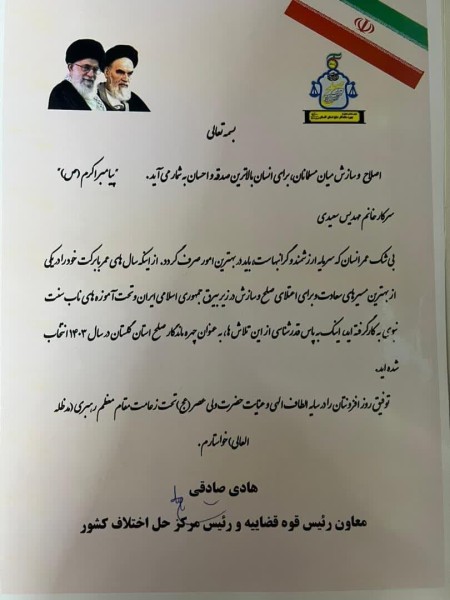 بسمه تعالی
اصلاح و سازش میان مسلمانان، برای انسان بالاترین صدقه و احسان به شمار می آید. "پیامبر اکرم (ص)"
سرکار خانم مهدیس سعیدی
بی شک عمر انسان که سرمایه ارزشمند و گرانبهاست، باید در بهترین امور صرف گردد. از اینکه سال های عمر بابرکت خود را در یکی
از بهترین مسیرهای سعادت و برای اعتلای صلح و سازش در زیر بیرق جمهوری اسلامی ایران و تحت آموزه های ناب سنت
نبوی به کار گرفته اید، اینک به پاس قدرشناسی از این تلاش ها، به عنوان چهره ماندگار صلح استان گلستان در سال ۱۴۰۳ انتخاب
شده اید.
توفیق روز افزونتان را در سایه الطاف الهی و عنایت حضرت ولی عصر (عج) تحت زعامت مقام معظم رهبری (مدظله
العالی) خواستارم.
هادی صادقی
معاون رئیس قوه قضاییه و رئیس مرکز حل اختلاف کشور